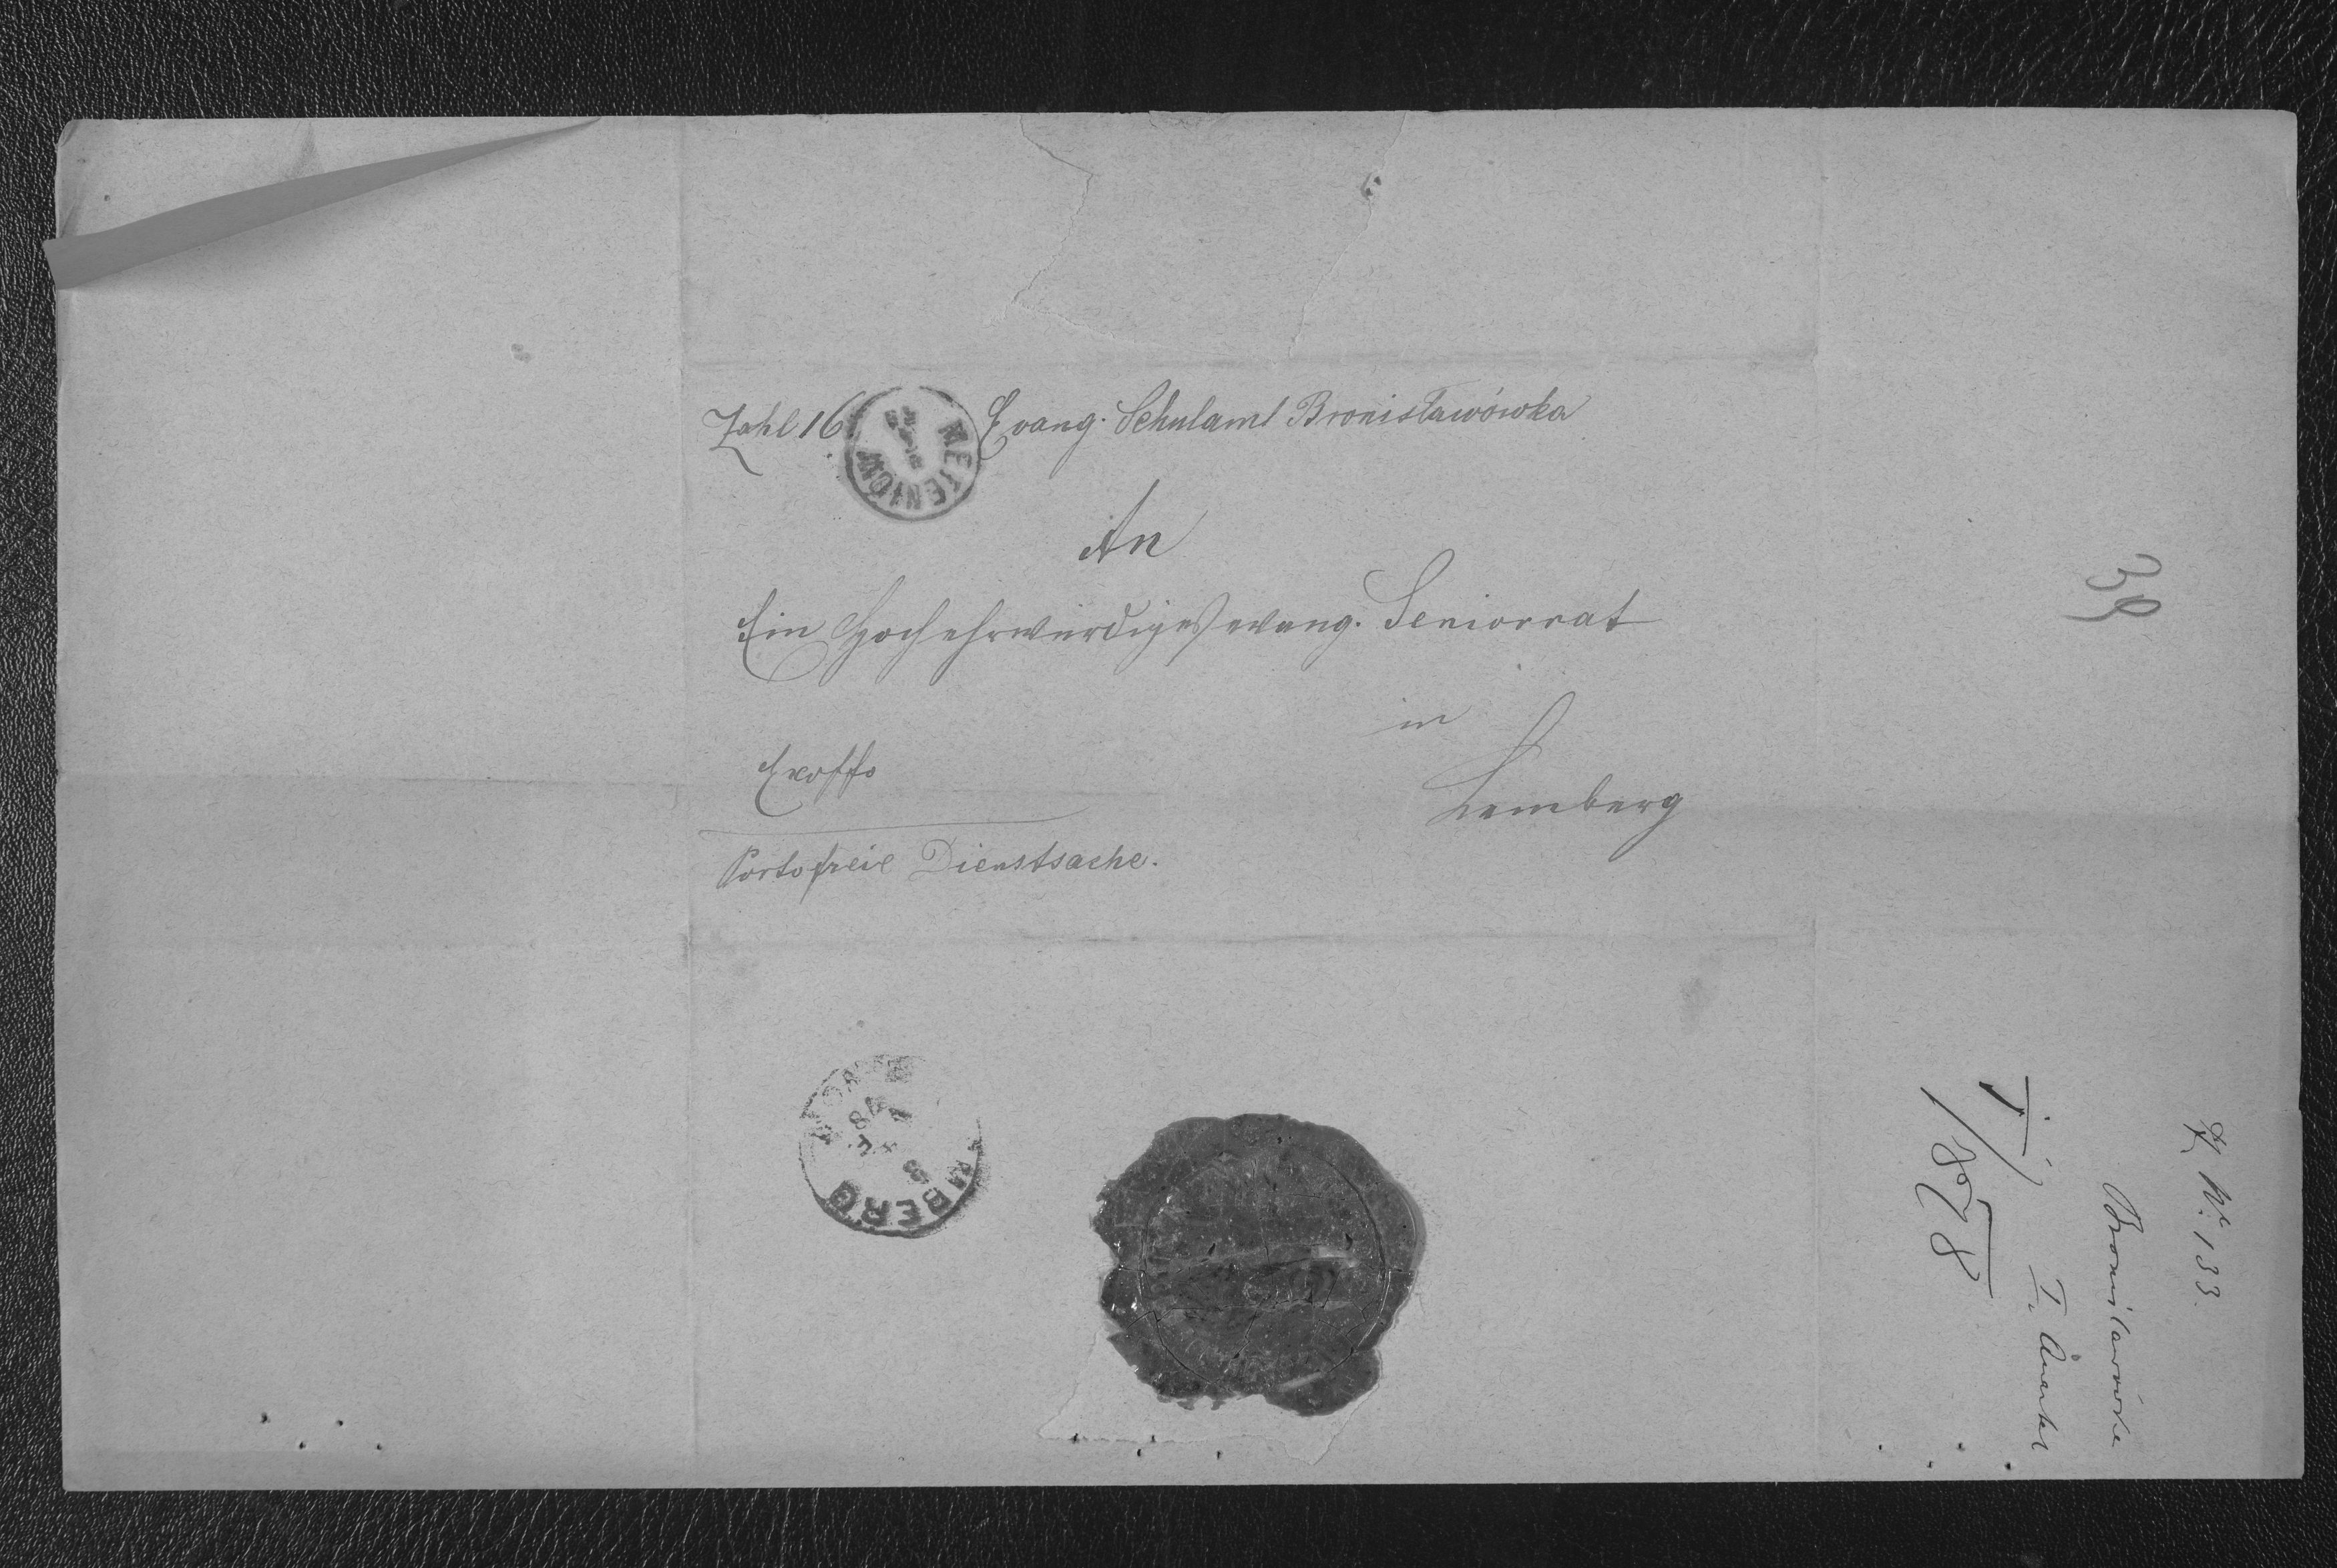 Zahl 16 Evang. Schulamt Bronisławówka
An
Ein Hochehrwürdiges evang. Seniorrat
in
Lemberg
Exoffo
Portofreie Dienstsache.
39
№ 133.
Bronisławówka
I. Quartal
1878
MBERG